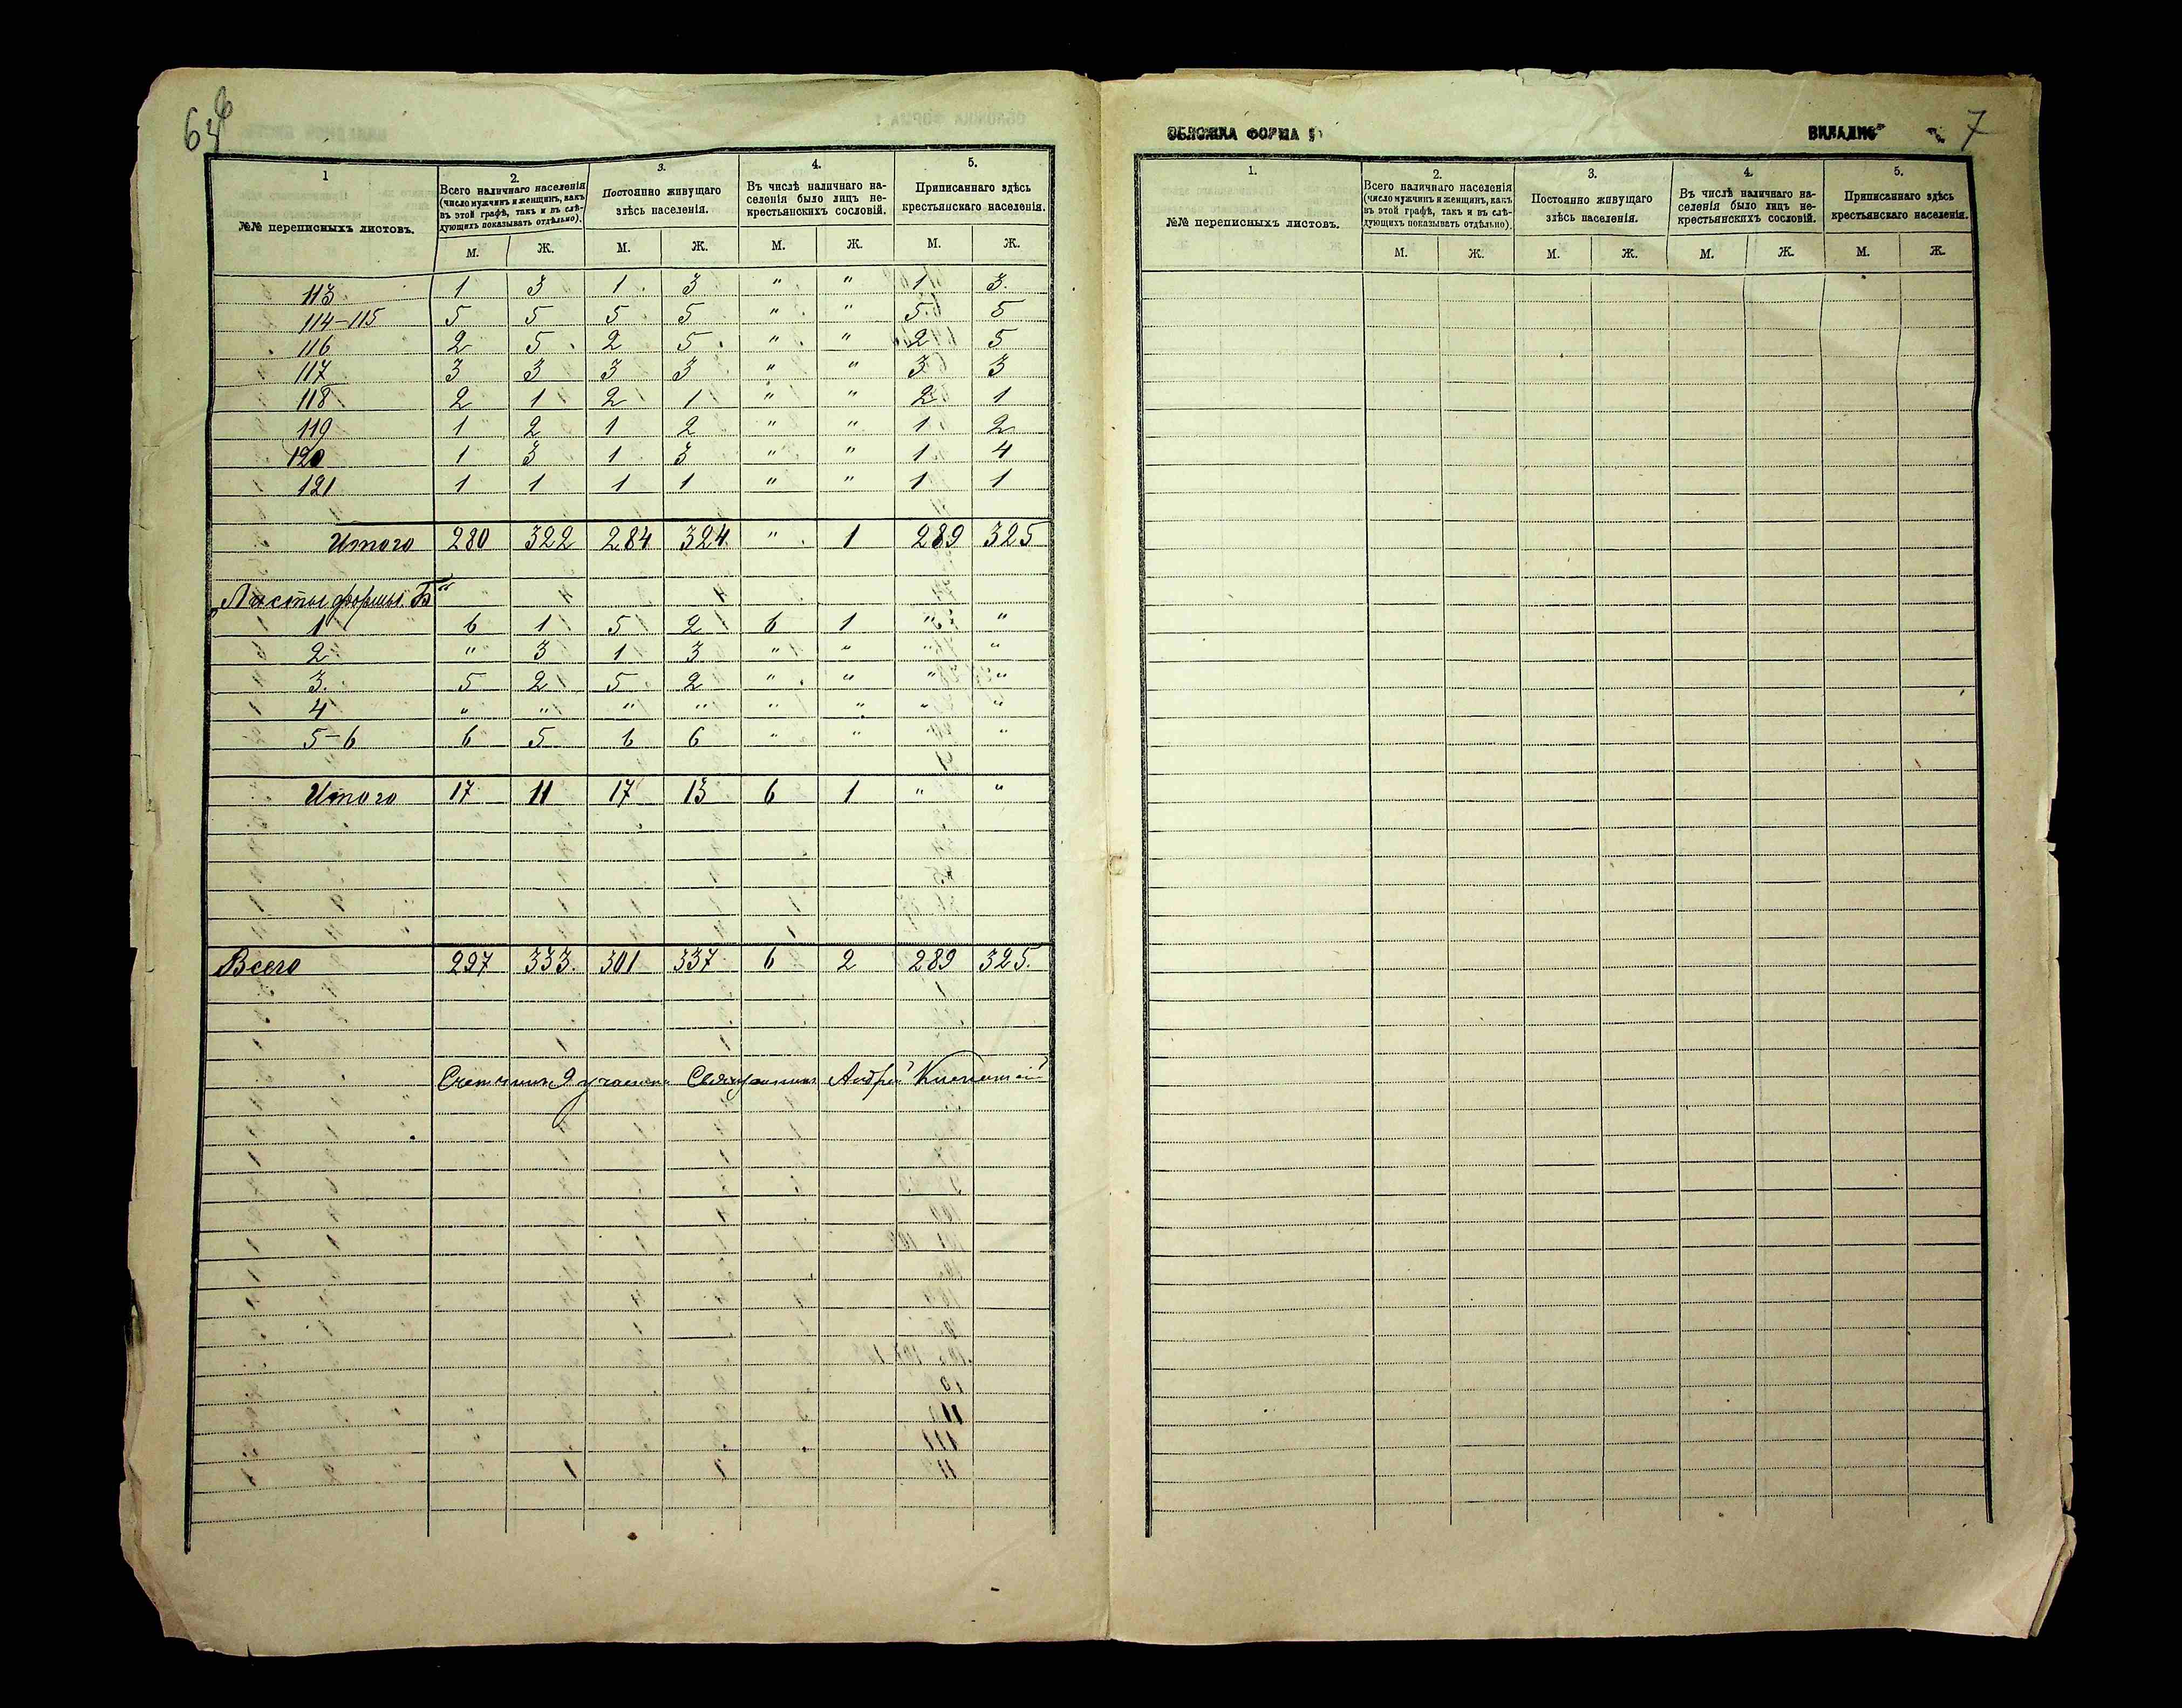 6 об
1
№№ переписныхъ листовъ.
2.
Всего наличнаго населенія
(число мужчинъ и женщинъ, какъ
въ этой графѣ, такъ и въ слѣ-
дующихъ показывать отдѣльно).
3.
Постоянно живущаго
здѣсь населенія.
4.
Въ числѣ наличнаго на-
селенія было лицъ не-
крестьянскихъ сословій.
5.
Приписаннаго здѣсь
крестьянскаго населенія.
М. Ж. М. Ж. М. Ж. М. Ж.
113 1 3 1 3 " " 1 3.
114-115 5 5 5 5 " " 5. 5
116 2 5 2 5 " " 2 5
117 3 3 3 3 " " 3 3
118 2 1 2 1 " " 2 1
119 1 2 1 2 " " 1 2
120 1 3 1 3 " " 1 4
121 1 1 1 1 " " 1 1
Итого 280 322 284 324. " 1 289 325
Листы формы „Б"
1 6 1 5 2 6 1 " "
2 " 3 1 3 " " " "
3. 5 2 5 2 " " " "
4 " " " " " " " "
5-6 6 5 6 6 " " " "
Итого 17 11 17 13 6 1 " "
Всего 297 333. 301 337 6 2 289 325.
Счетчикъ 9 участка Священникъ Андрей
ОБЛОЖКА ФОРМА
7
1.
№№ переписныхъ листовъ.
2.
Всего наличнаго населенія
(число мужчинъ и женщинъ, какъ
въ этой графѣ, такъ и въ слѣ-
дующихъ показывать отдѣльно).
3.
Постоянно живущаго
здѣсь населенія.
4.
Въ числѣ наличнаго на-
селенія было лицъ не-
крестьянскихъ сословій.
5.
Приписаннаго здѣсь
крестьянскаго населенія.
М. Ж. М. Ж. М. Ж. М. Ж.